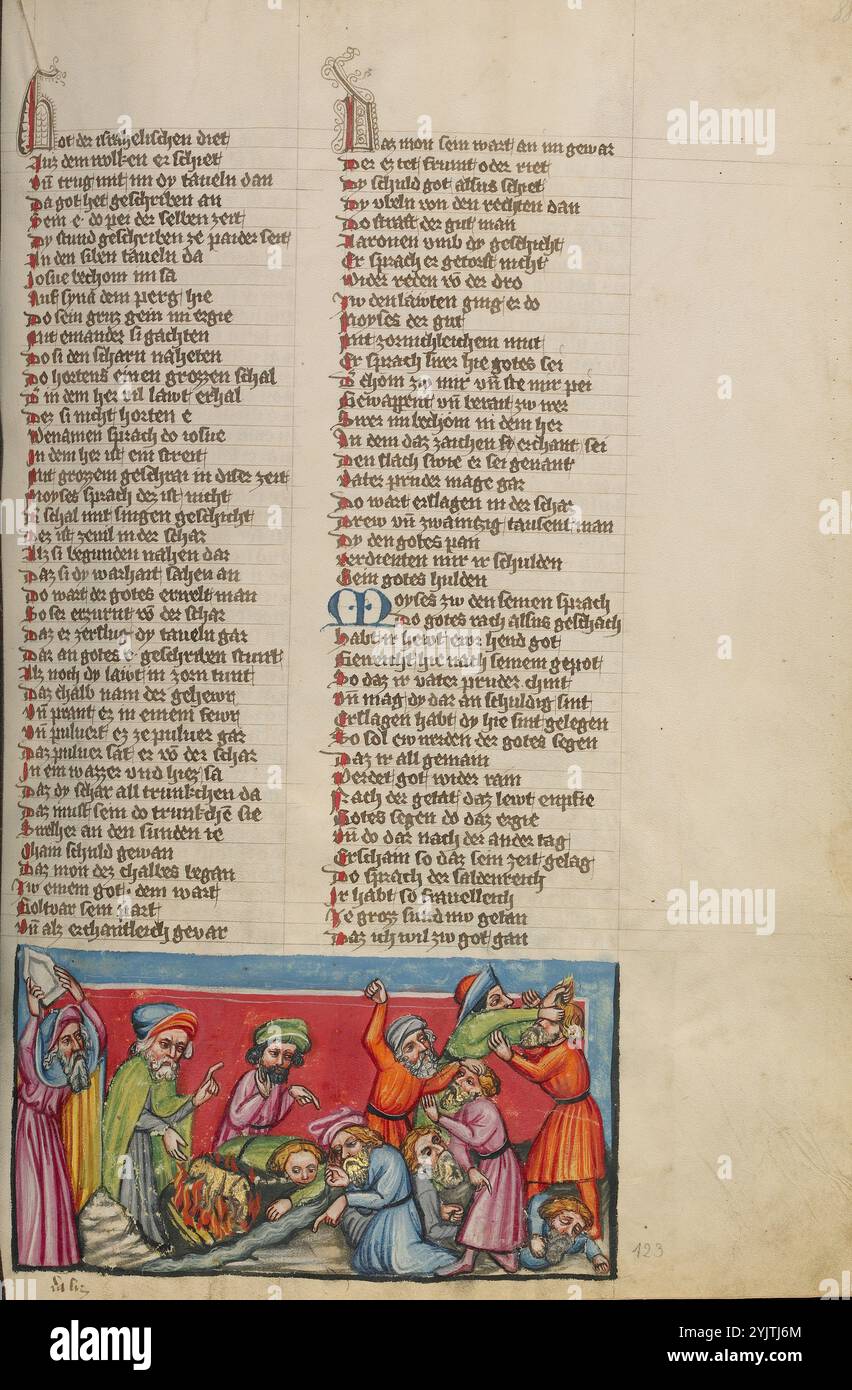 Got der israhelischen diet
Auz dem wolken er schiet
Vñ trug mit im dy taueln dan
Da got het geschriben an
Sein e do pei der selben zeit
Dy stund geschriben ze paider seit
In den siben taueln da
Josue bechom im sa
Auf syna dem perg hie
Do sein gruz gein im ergie
Mit einander si gachten
Do si den scharn naheten
Do hortens einen grozzen schal
D in dem her vil lawt erhal
Dez si nicht horten e
Wenamen sprach do iosue
In dem her ist ein streit
Mit grozzem geschrai in diser zeit
Moyses sprach dez ist nicht
schal mit singen geschicht
Dez ist in der schar
Alz si begunden nahen dar
Daz si dy warhait sahen an
Do wart der gotes erwelt man
So ser erzurnt võ der schar
Daz er zerslug dy taueln gar
Dar an gotes e geschriben stunt
Alz noch dy lawt in zorn tunt
Daz chalb nam der gehewr
Vñ prant ez in einem fewr
Vñ puluert ez ze puluer gar
Daz puluer sat er võ der schar
In ein wazzer vnd hiez sa
Daz dy schar all trunkchen da
Daz must sein do trunkchẽ sie
Swelher an den sunden ie
Cham schuld gewan
Daz mon dez chalbes began
Zw einem got dem wart
Goltvar sein part
Vñ alz erchantleich gevar
Daz mon sein wart an im gewar
Der ez tet frumt oder riet
Dy schuld got alsus schiet
Dy vbeln von den rechten dan
Do straft der gut man
Aaronen vmb dy geschicht
Er sprach er getorst nicht
Wider reden võ der dro
Zw den lawten ging er do
Moyses der gut
Mit zornichleichem mut
Er sprach swer hie gotes sei
D chom zw mir vñ ste mir pei
Gewappent vñ berait zw wer
Swer im bechom in dem her
An dem daz zaichen erchant sei
Den slach swie er sei genant
Vater pruder mage gar
Do wart erslagen in der schar
Drew vñ zwaintzig tausent man
Dy den gotes pan
Verdienten mit ir schulden
Gein gotes hulden
Moyses zw den seinen sprach
Do gotes rach alsus geschach
Habt ir hewt ewr hend got
Geweicht hie nach seinem gepot
So daz ir vater pruder chint
Vñ mag dy dar an schuldig sint
Erslagen habt dy hie sint gelegen
So sol ew werden der gotes segen
Daz ir all gemain
Werdet got wider rain
Nach der getat daz lewt enpfie
Gotes segen do daz ergie
Vñ do dar nach der ander tag
Erschain so daz sein zeit gelag
Do sprach der saldenreich
Ir habt so frauelleich
Je grozz sund nw getan
Daz ich wil zw got gan
123
alamy
Image ID: 2YJTJ6M
www.alamy.com